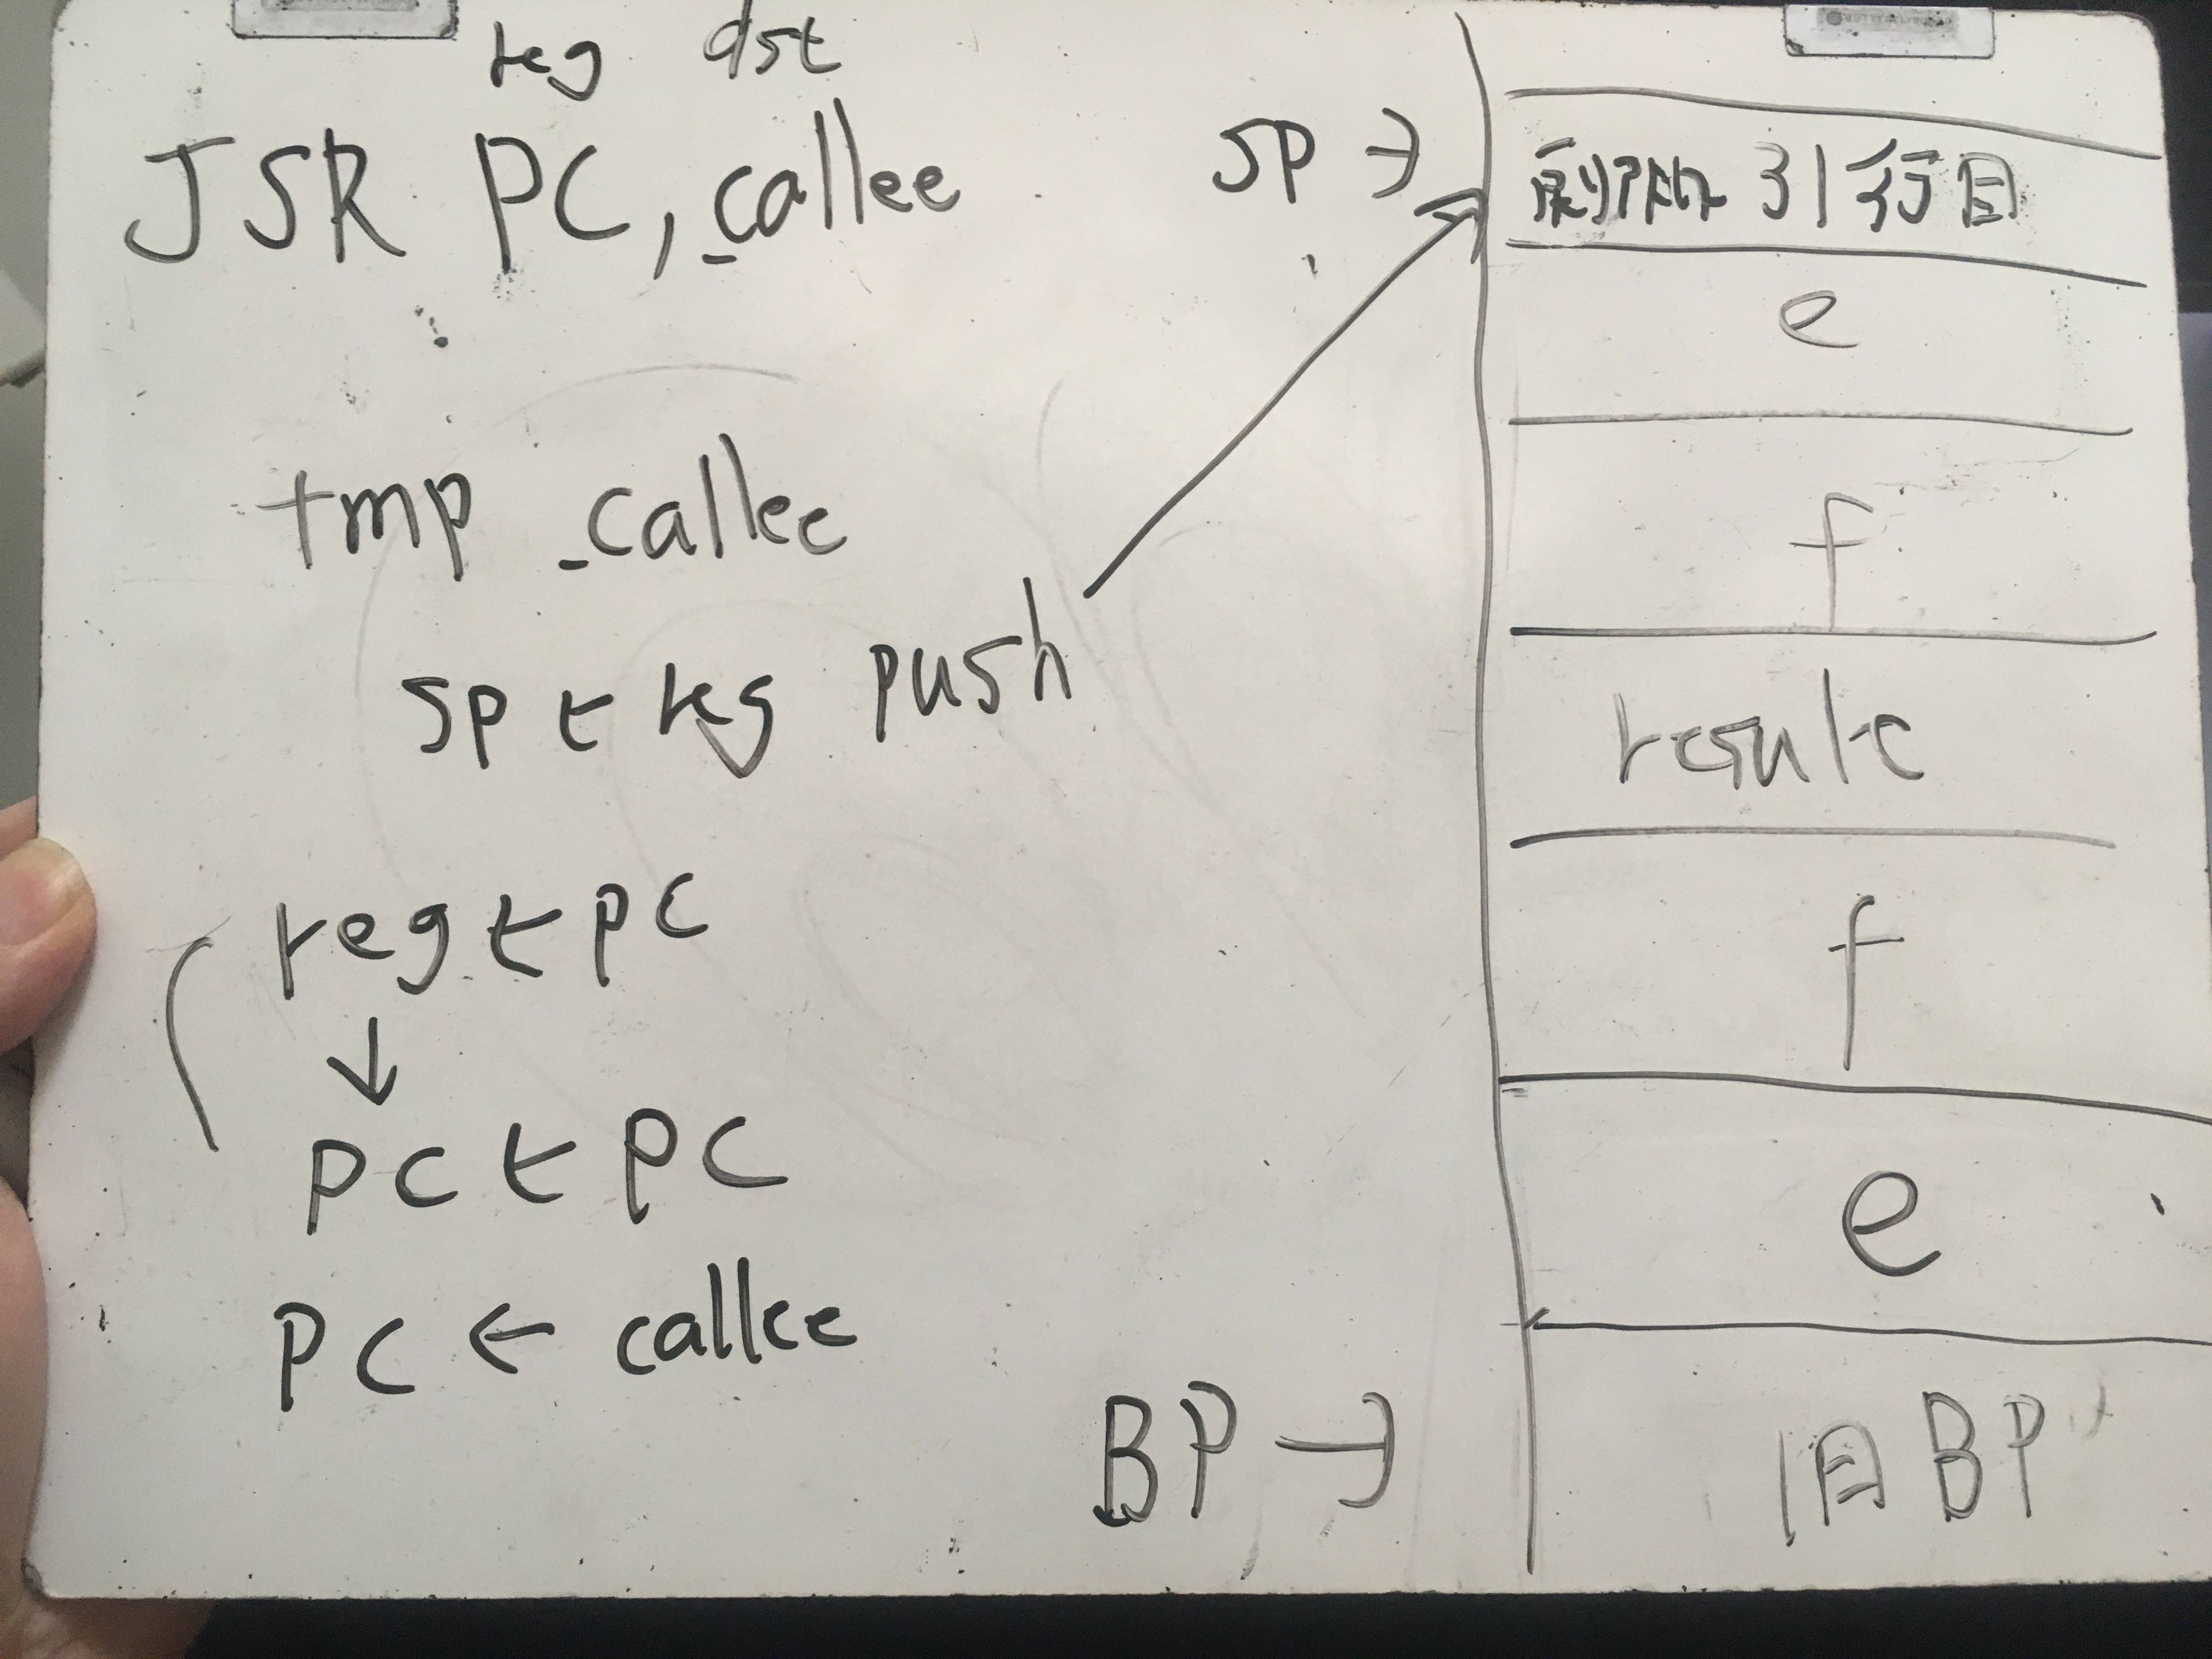 reg dst
JSR PC, _callee
tmp _callee
SP ← reg push
reg ← PC
↓
PC ← PC
PC ← callee
SP →
31行目
e
f
result
f
e
BP →
旧BP